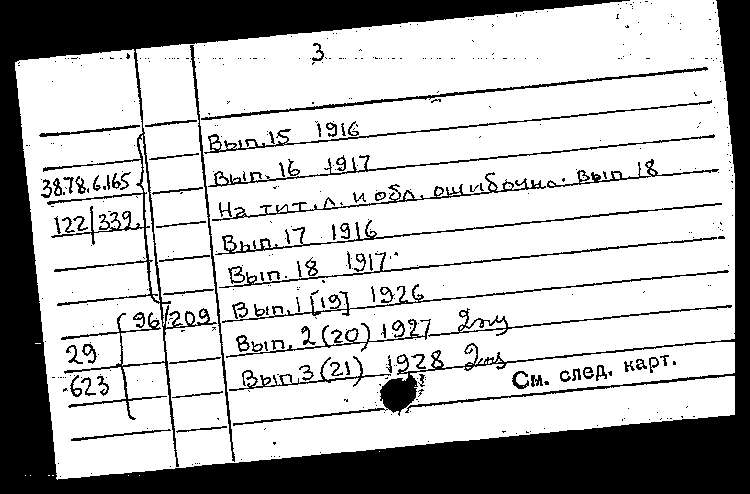 3
Вып. 15 1916
38.78.6.165 Вып. 16 1917
122/339. На тит. л. и обл. ошибочно: Вып 18
Вып. 17 1916
Вып. 18 1917
96/209 Вып. 1 [19] 1926
29 Вып. 2 (20) 1927 2экз
-623 Вып 3 (21) 1928 2экз
См. след. карт.